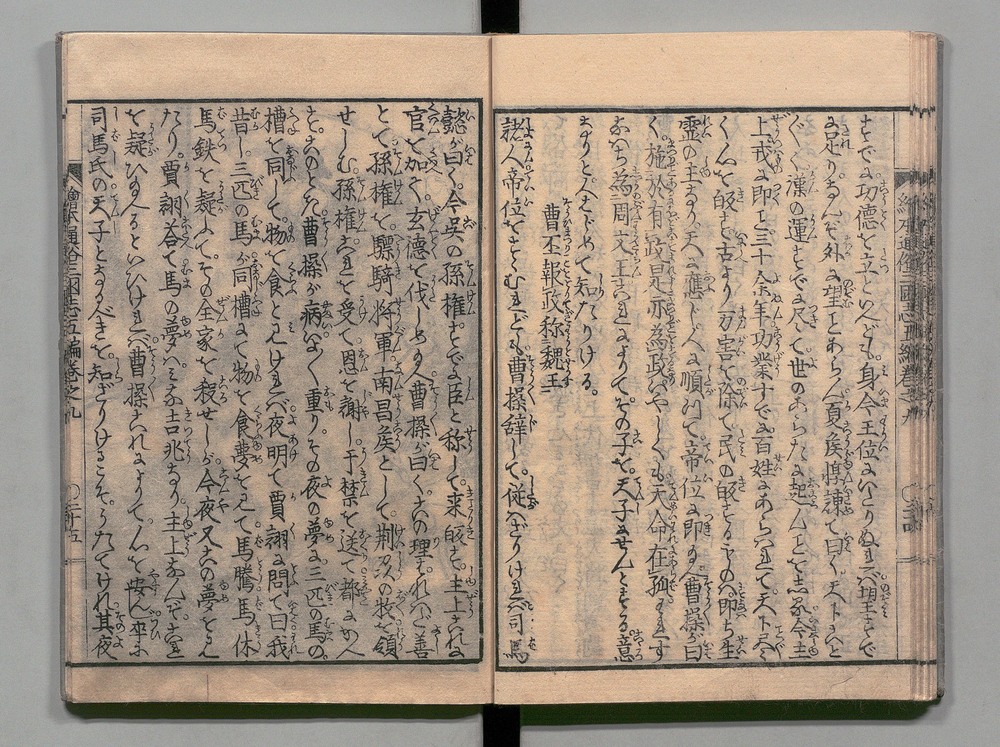 すでに功徳を立といへども。身今王位にいたりぬれば望すでに
に足りぬ。なんぞ外に望ことあらん。夏侯惇諫て曰く天下みなこと
ごとく漢の運すでに尽て世のあらたに起んことを志る今主
上戎に即こと三十余年功業すでに百姓にあらはれて天下尽く
く心を皈す古より万害を除て民の皈するものは即ち生
霊の主なり天に應じ人に順つて帝位に即給へ曹操が曰
く。施於有政是亦為政いやしくも天命在孤われす
なはち為周文王これによつてその子を。天子にせんとする意
なりと人はじめて知たりける。
曹丕報政称魏王
諸人帝位をすすむれども曹操辞して。従ざりければ司馬
繪本通俗三國志五編巻之九
懿が曰く。今呉の孫権すでに臣と称して来皈す主上これに
官を加へ玄徳を伐しめ給へ曹操が曰く。この理われに善
とて孫権を。驃騎将軍。南昌侯として荊州の牧を領
せしむ孫権これを受て恩を謝し于禁を送て都にかへ
す。このとき曹操が病重り。その夜の夢に。三匹の馬の。
槽を同して物を食とみければ夜明て賈詡に問て曰我
昔し三匹の馬が同槽にて物を食夢をみて馬騰馬休
馬鉄を疑ふてその全家を殺せしが今夜又この夢をみ
たり。賈詡答て馬の夢はみな吉兆なり主上なんぞこれ
を疑ひ給ふといひければ曹操これによつて心を安んず
司馬氏の天子となるべきを。知ざりけるこそ。うたてけれ其夜
繪本通俗三國志五編巻之九 二十五